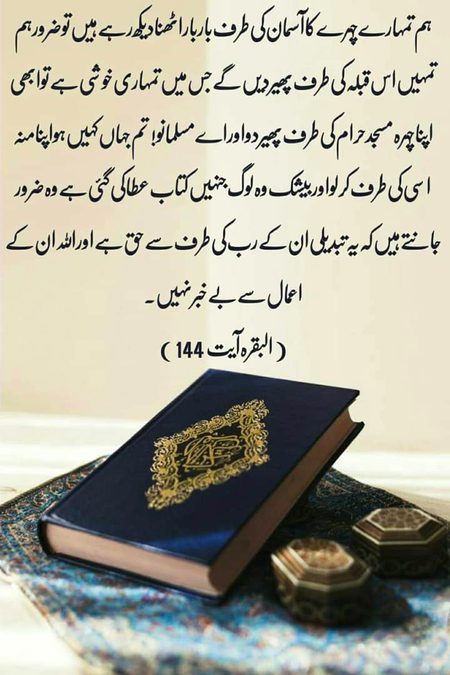 ہم تمہارے چہرے کا آسمان کی طرف بار بار اٹھنا دیکھ رہے ہیں تو ضرور ہم
تمہیں اس قبلہ کی طرف پھیر دیں گے جس میں تمہاری خوشی ہے تو ابھی
اپنا چہرہ مسجد حرام کی طرف پھیر دو اور اے مسلمانو! تم جہاں کہیں ہو اپنا منہ
اسی کی طرف کر لو اور بیشک وہ لوگ جنہیں کتاب عطا کی گئی ہے وہ ضرور
جانتے ہیں کہ یہ تبدیلی ان کے رب کی طرف سے حق ہے اور اللہ ان کے
اعمال سے بے خبر نہیں۔
(البقرہ آیت 144)